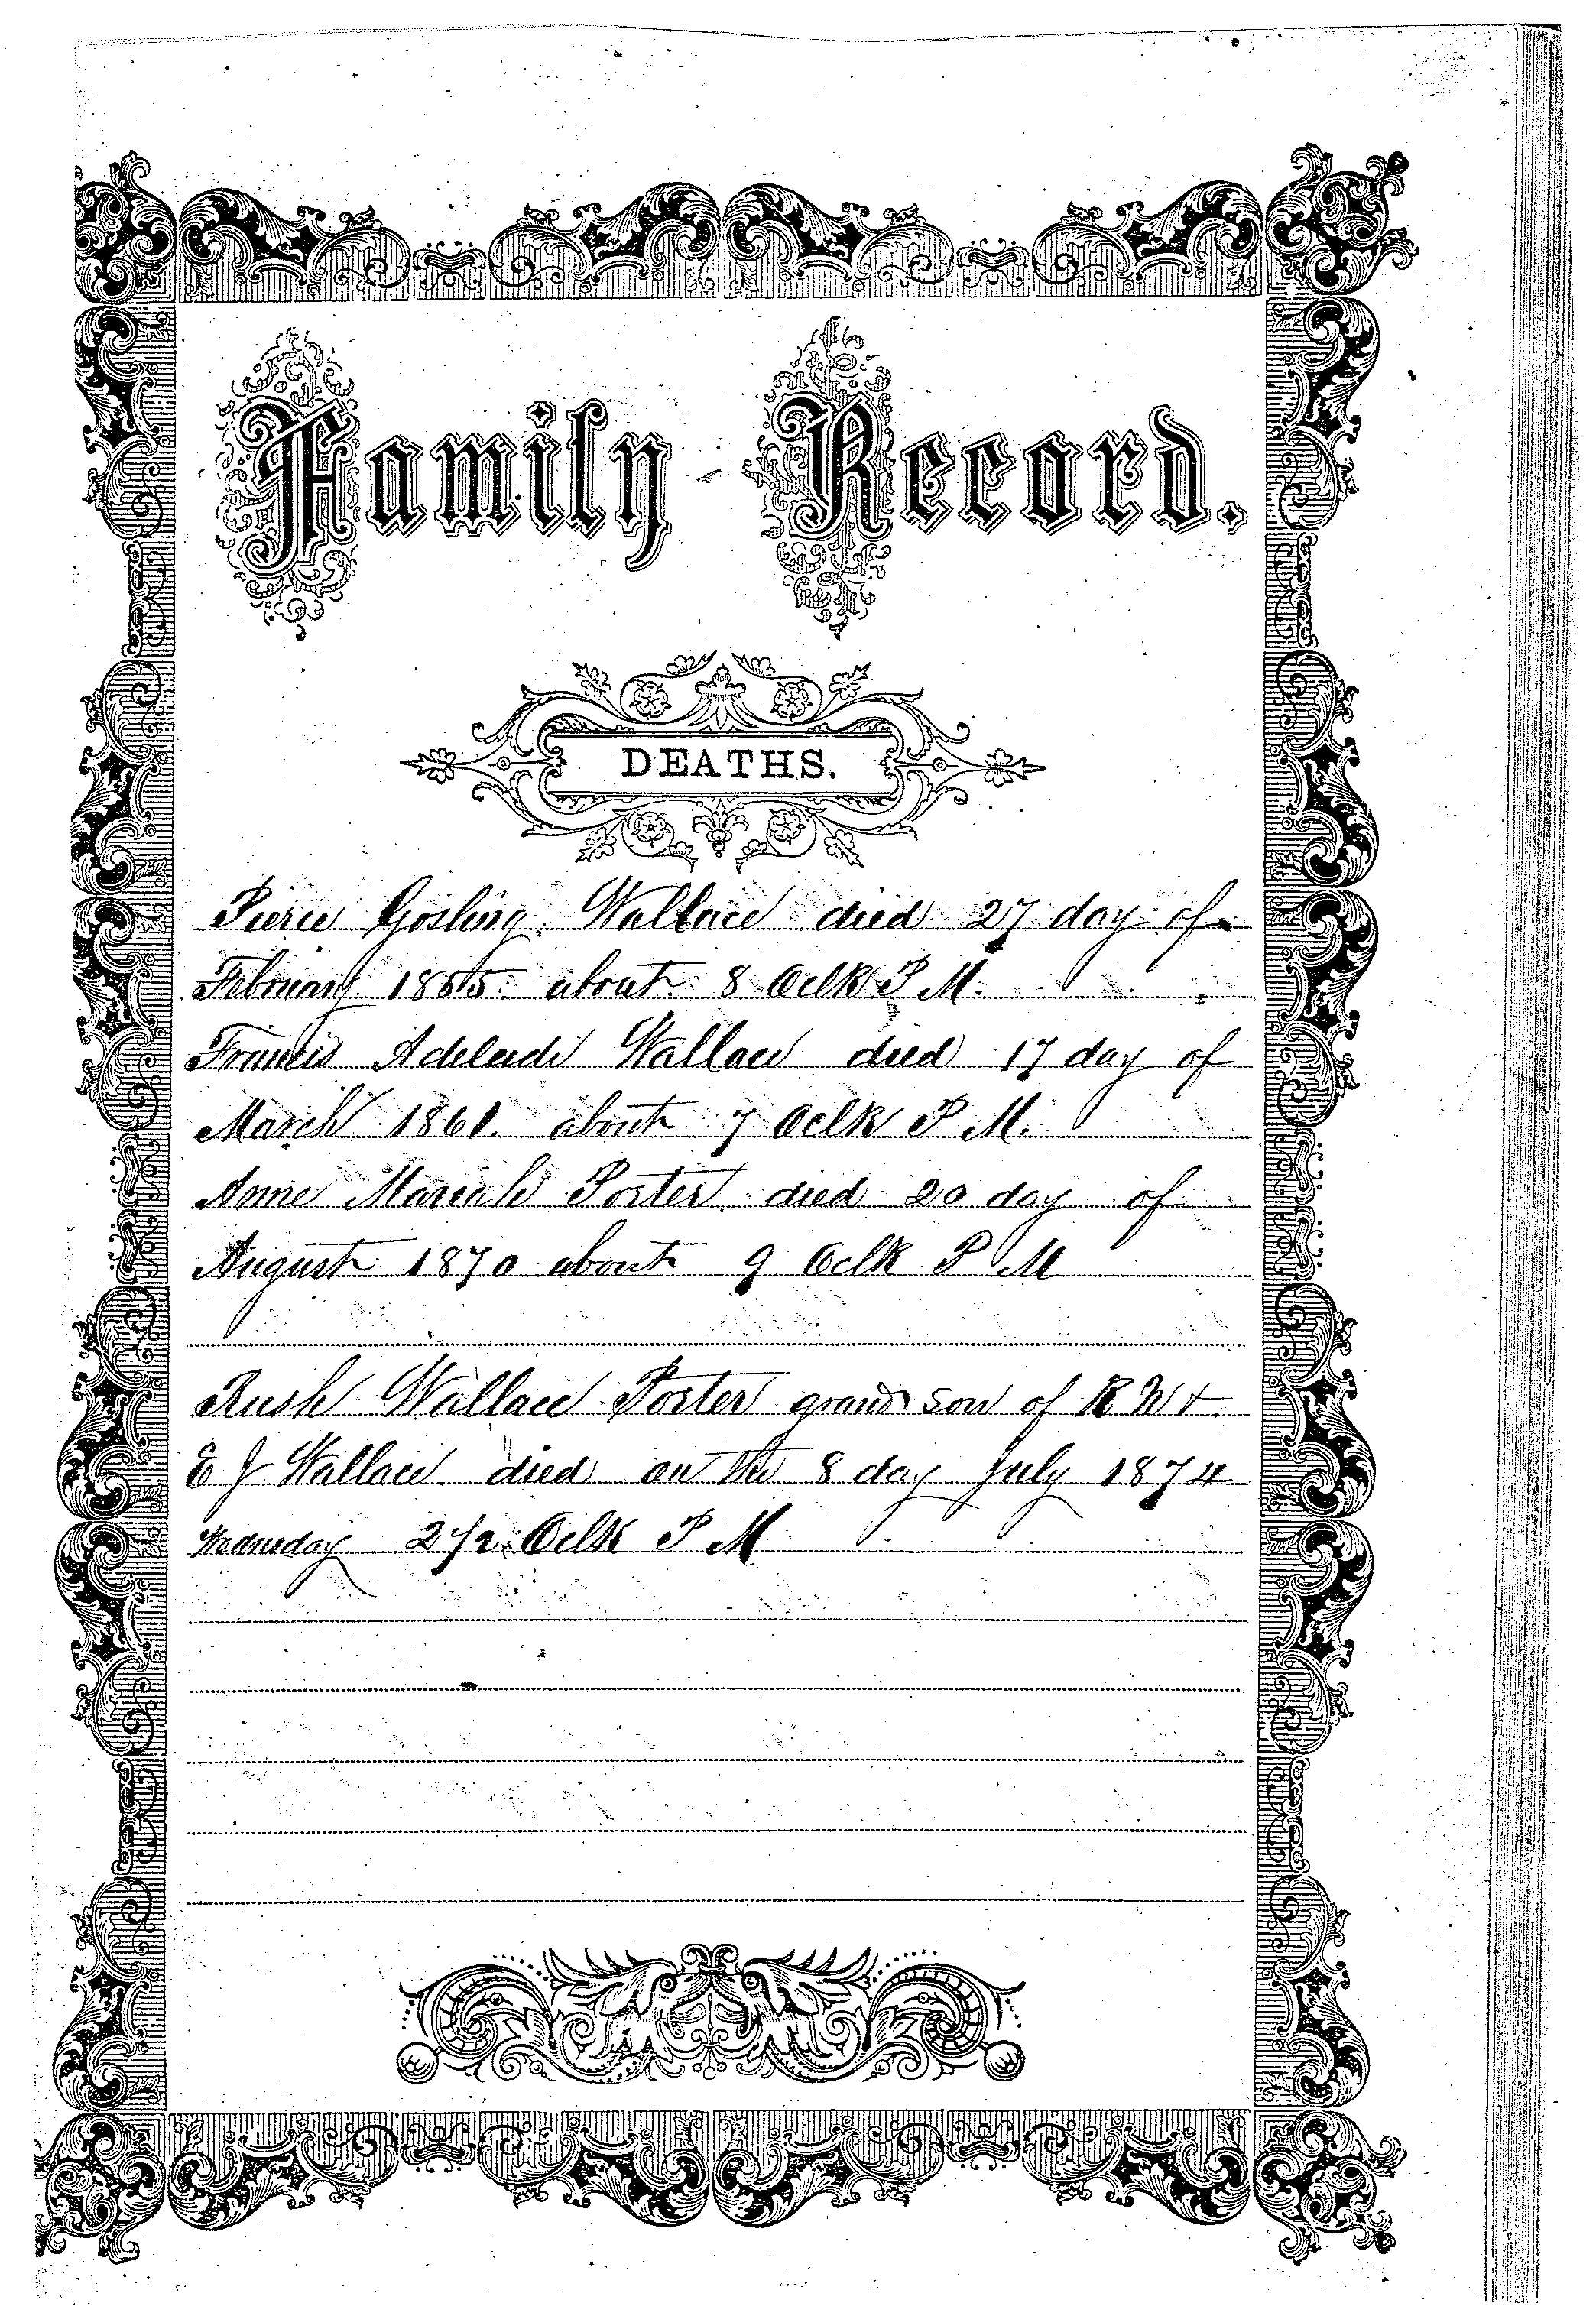 Family Record.
DEATHS.
Pierce Gosling Wallace died 27 day of
February 1855 about 8 Oclk P M.
Francis Adelaide Wallace died 17 day of
March 1861. about 7 Oclk P M.
Anne Mariah Porter died 20 day of
August 1870 about 9 Oclk P M
Rush Wallace Porter grand son of R W &
E J Wallace died on the 8 day July 1874
Wednesday 2 1/2 Oclk P M